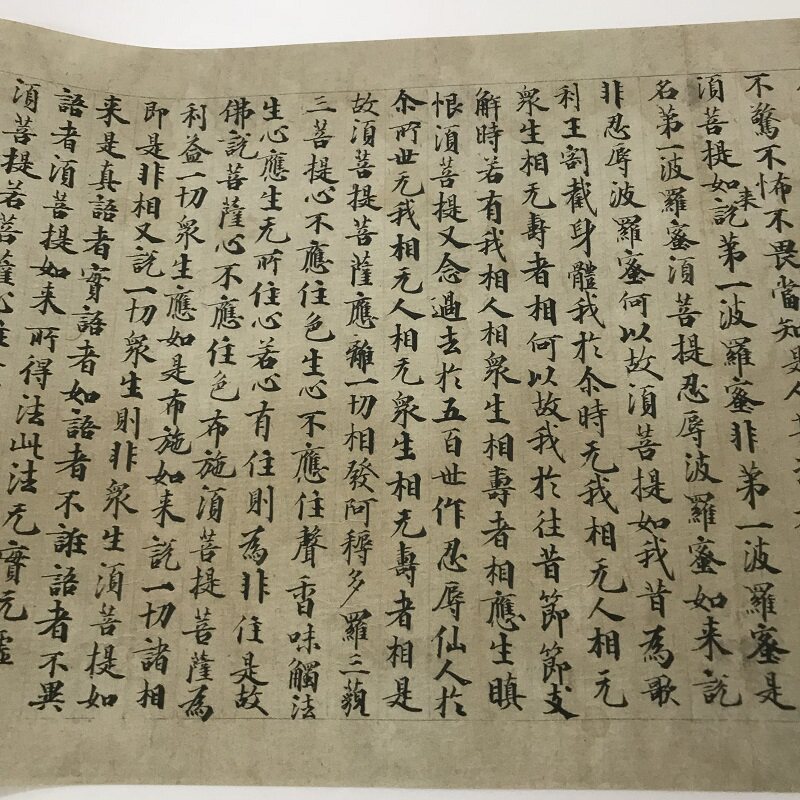 不驚不怖不畏當知是人甚
須菩提如来說第一波羅蜜非第一波羅蜜是
名第一波羅蜜須菩提忍辱波羅蜜如来說
非忍辱波羅蜜何以故須菩提如我昔為歌
利王割截身體我於尒時无我相无人相无
衆生相无壽者相何以故我於往昔節節支
解時若有我相人相衆生相壽者相應生瞋
恨須菩提又念過去於五百世作忍辱仙人於
尒所世无我相无人相无衆生相无壽者相是
故須菩提菩薩應離一切相發阿耨多羅三藐
三菩提心不應住色生心不應住聲香味觸法
生心應生无所住心若心有住則為非住是故
佛說菩薩心不應住色布施須菩提菩薩為
利益一切衆生應如是布施如来說一切諸相
即是非相又說一切衆生則非衆生須菩提如
来是真語者實語者如語者不誑語者不異
語者須菩提如来所得法此法无實无虛
須菩提若菩薩心住